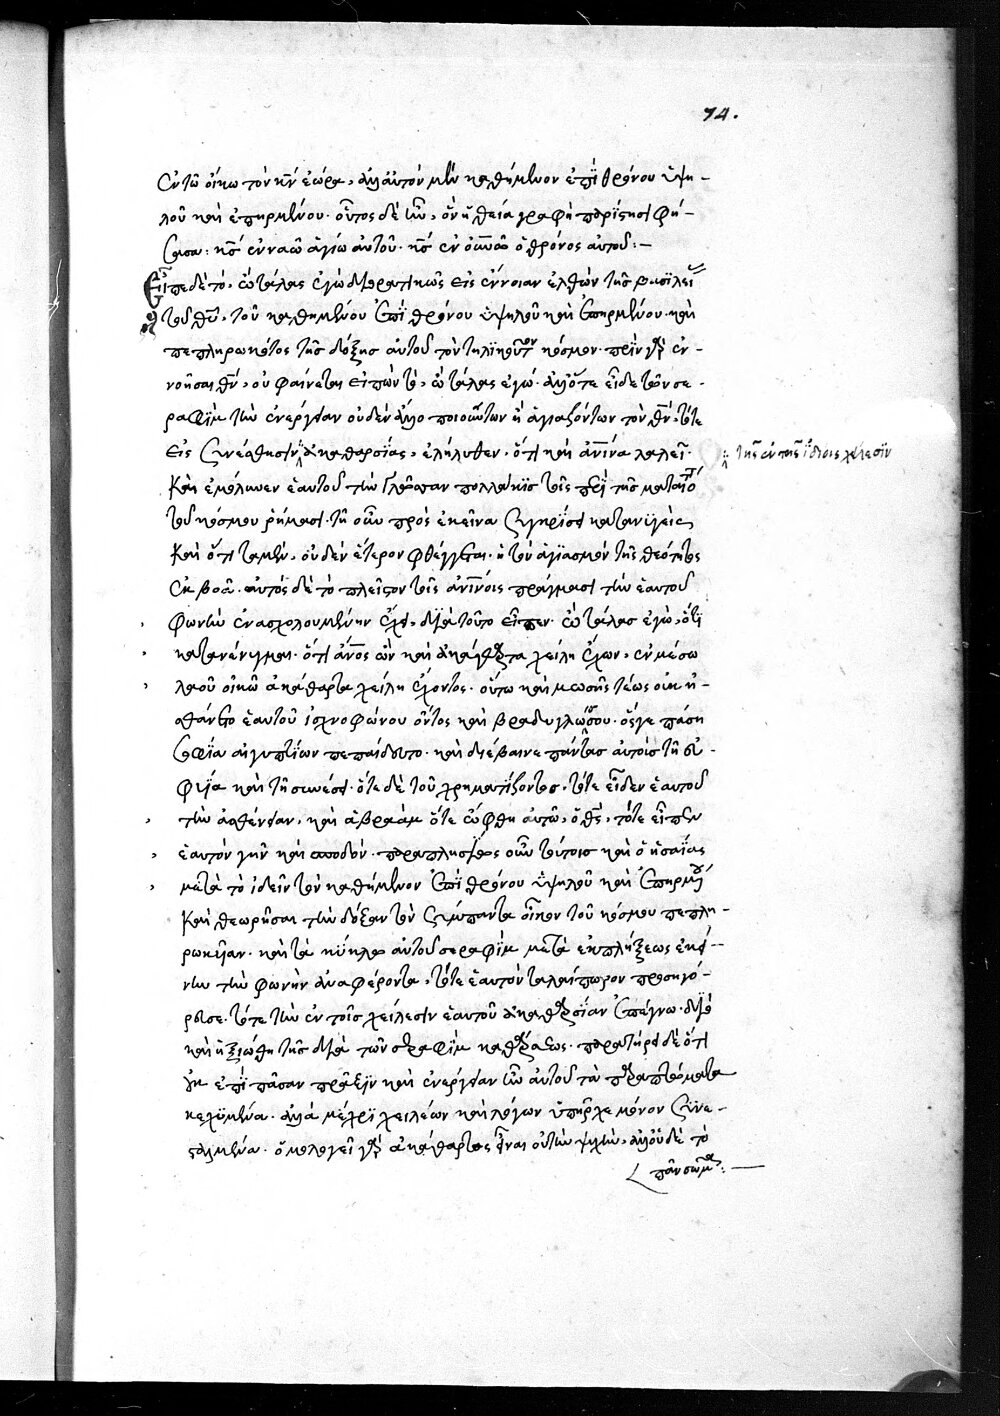 74.
ἐν τῶ οἴκω τὸν κν̅ ἑώρα, ἀλλ' αὐτὸν μὲν καθήμενον ἐπὶ θρόνου ὑψη-
λοῦ καὶ ἐπηρμένου· οὗτος δὲ ἦν, ὃν ἡ θεία γραφὴ παρίστησι φή-
σασα: κς̅ ἐν ναῶ ἁγίω αὐτοῦ· κς̅ ἐν οὐνῶ ὁ θρόνος αὐτοῦ:—
Εἶπε δὲ τὸ, ὦ τάλας ἐγὼ εἰς ἔννοιαν ἐλθὼν τῆς βασιλεί
τοῦ θυ̅, τοῦ καθημένου ἐπὶ θρόνου ὑψηλοῦ καὶ ἐπηρμένου· καὶ
πεπληρωκότος τῆς δόξης αὐτοῦ τὸν τηλικοῦτον κόσμον· πρὶν γὰρ ἐν-
νοῆσαι θν̅, οὐ φαίνεται εἰπὼν τὸ, ὦ τάλας ἐγώ· ἀλλ' ὅτε εἶδε τῶν σε-
ραφὶμ τὴν ἐνέργειαν οὐδὲν ἄλλο ποιούντων ἢ ἁγιαζόντων τὸν θν̅, τότε
εἰς συναίσθησιν ἀκαθαρσίας, ἐλήλυθεν, ὅτι καὶ ἀνινα λαλεῖ·
τῆς ἐν τοῖς ἰδίοις χείλεσιν
καὶ ἐμόλυνεν ἑαυτοῦ τὴν γλῶτταν πολλάκις τοῖς περὶ τῆς ματαιό
τοῦ κόσμου ῥήμασι· τῆ οὖν πρὸς ἐκεῖνα συγκρίσει κατανυγεὶς
καὶ ὅτι τὰ μὲν, οὐδὲν ἕτερον φθέγγεται· ἢ τὸν ἁγιασμὸν τῆς θεότητος
ἐκβοᾶ· αὐτὸς δὲ τὸ πλεῖστον τοῖς ἀνίνοις πράγμασι τὴν ἑαυτοῦ
φωνὴν ἐνασχολουμένην ἔχει, διὰ τοῦτο εἶπεν· ὦ τάλας ἐγὼ, ὅτι
κατανένυγμαι· ὅτι ἄνος ὢν καὶ ἀκάθαρτα χείλη ἔχων, ἐν μέσω
λαοῦ οἰκῶ ἀκάθαρτα χείλη ἔχοντος· οὕτω καὶ μωσῆς τέως οὐκ ἠ-
σθάνετο ἑαυτοῦ ἰσχνοφώνου ὄντος καὶ βραδυγλώσσου· ὅς γε πάση
σοφία αἰγυπτίων πεπαίδευτο· καὶ διέβαινε πάντας αὐτοὺς τῆ εὐ-
φυΐα καὶ τῆ συνέσει· ὅτε δὲ τοῦ χρηματίζοντος, τότε εἶδεν ἑαυτοῦ
τὴν ἀσθένειαν, καὶ ἀβραὰμ ὅτε ὤφθη αὐτῶ, ὁ θς̅, τότε εἶπεν
ἑαυτὸν γῆν καὶ σποδὸν· παραπλησίως οὖν τούτοις καὶ ὁ ἡσαΐας
μετὰ τὸ ἰδεῖν τὸν καθήμενον ἐπὶ θρόνου ὑψηλοῦ καὶ ἐπηρμένου
καὶ θεωρῆσαι τὴν δόξαν τὸν σύμπαντα οἶκον τοῦ κόσμου πεπλη-
ρωκυῖαν· καὶ τὰ κύκλω αὐτοῦ σεραφὶμ μετὰ ἐκπλήξεως ἐκεί-
νην τὴν φωνὴν ἀναφέροντα, τότε ἑαυτὸν ταλαίπωρον προσηγό-
ρευσε· τότε τὴν ἐν τοῖς χείλεσιν ἑαυτοῦ ἀκαθαρσίαν ἐπέγνω· διὸ
καὶ ἠξιώθη τῆς διὰ τῶν σεραφὶμ καθάρσεως· παρατήρει δὲ ὅτι
οὐκ ἐπὶ πᾶσαν πρᾶξιν καὶ ἐνέργειαν ἦν αὐτοῦ τὰ πταίσματα
κεχυμένα· ἀλλὰ μέχρι χειλέων καὶ λόγων ὑπῆρχε μόνον συνε-
σταλμένα· ὁμολογεῖ γὰρ ἀκάθαρτος εἶναι οὐ τὴν ψυχὴν, ἀλλ' οὐδὲ τὸ
πᾶν σῶμα:—